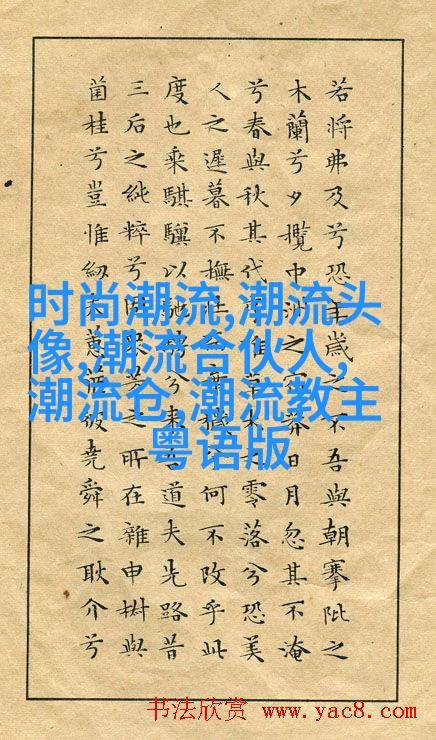 若將弗及兮恐年歲之不吾與朝搴阰之
木蘭兮夕攬中洲之宿莽日月忽其不淹
兮春與秋其代序惟草木之零落兮恐美
人之遲暮不撫壯棄穢兮何不改乎此
度也乘騏驥以馳騁兮來吾道夫先路昔
三后之純粹兮固眾芳之所在雜申椒與
菌桂兮豈惟紉夫蕙茞彼堯舜之耿介兮
时尚潮流,潮流头
像,潮流合伙人,
潮流仓,潮流教主
粤语版
书法欣赏 www.yac8.com